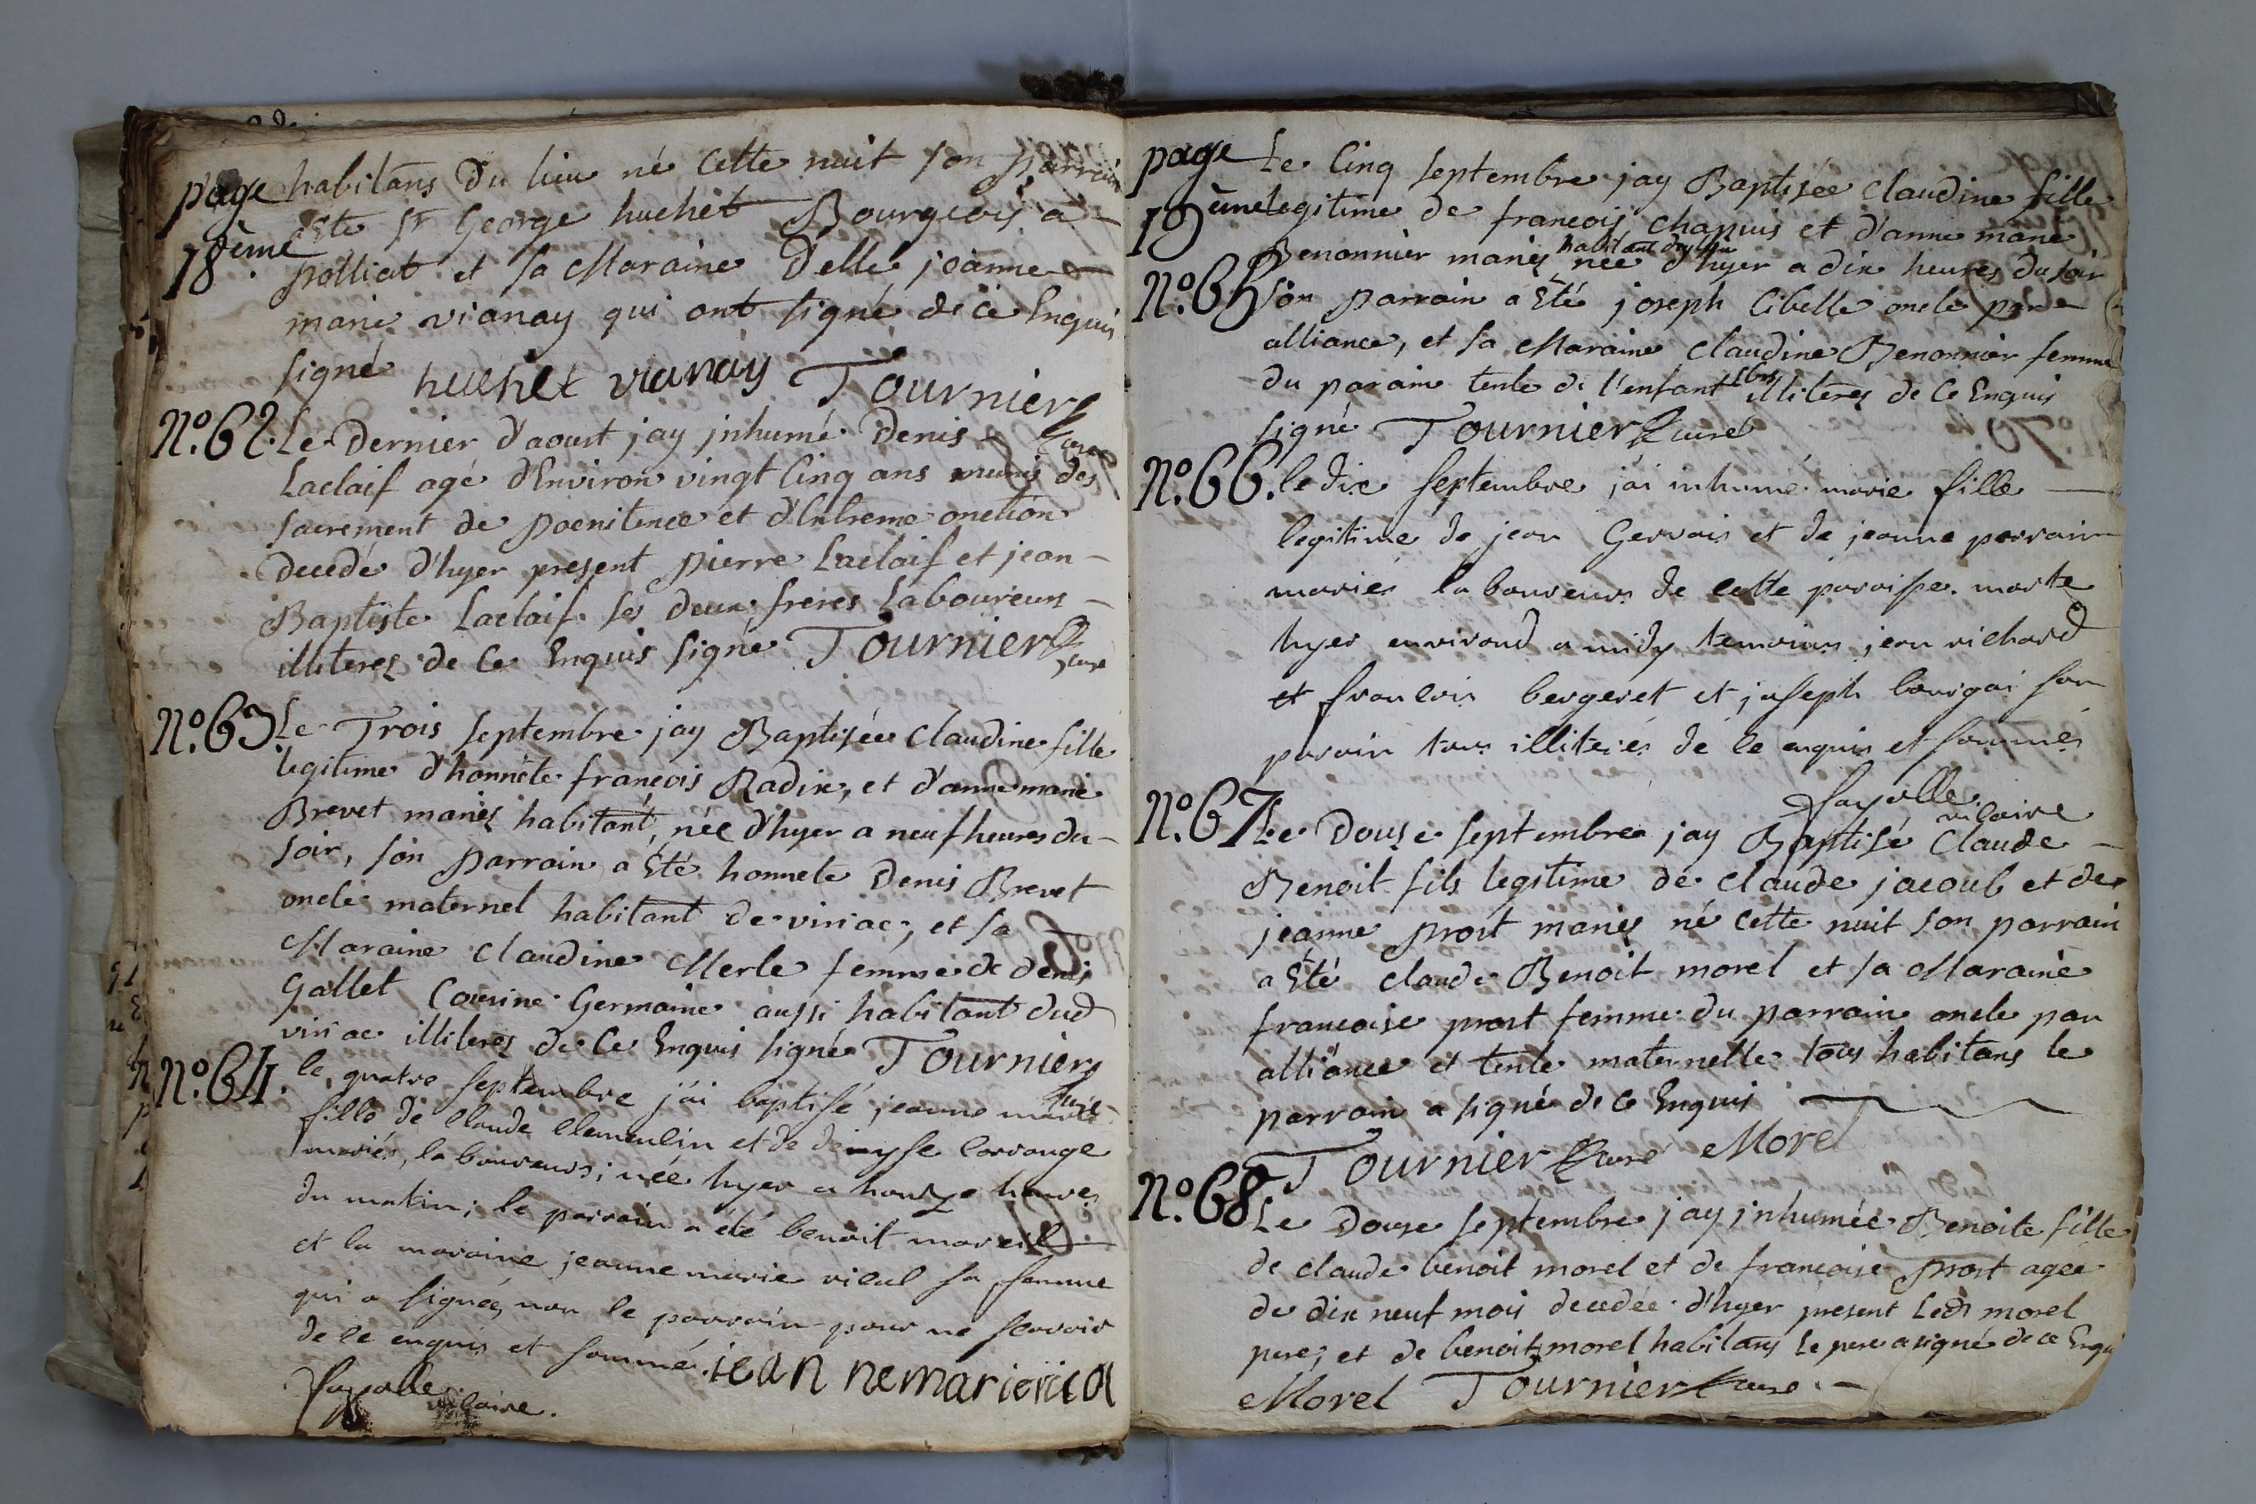 page habitans du lieu né cette nuit son parrain
18ème a Ete Sr George huchet Bourgeois a
polliat et sa Maraine Delle jeanne
marie vianay qui ont signé de ce Enquis
signé huchet vianay Tournier curé
N.o 62. Le Dernier d'aoust jay jnhumé Denis
Laclaif agé d'Environ vingt Cinq ans munis des
sacrement de poenitence et d'Extreme onction
decedé d'hyer present pierre Laclaif et jean
Baptiste Laclaif ses deux freres Laboureurs
illiteres de Ce Enquis signé Tournier curé
N.o 63. Le Trois septembre jay Baptisée Claudine fille
legitime d'honnête françois Radix, et d'anne marie
Brevet mariés habitant, née d'hyer a neuf heures du
soir, son parrain a Eté honnete Denis Brevet
oncle maternel habitant de viriac, et sa
Maraine Claudine Merle femme de denis
Gallet Cousine Germaine aussi habitant dud
viriac illiteres de Ce Enquis signé Tournier
curé
N.o 64. le quatre septembre j'ai baptisé jeanne marie
fille de Claude Clemenlin et de denyse Carronge
mariés, laboureurs; née hyer a honze heures
du matin; le parrain a été benoit moreil
et la maraine jeanne marie vical sa femme
qui a signée, non le parrain pour ne scavoir
de ce enquis et sommé. jean ne marie vical
fayolle vicaire.
page Le Cinq septembre jay Baptisée Claudine fille
19ème legitime de francois Chapuis et d'anne marie
habitant du lieu
Benonnier mariés née d'hyer a dix heures du soir
N.o 65 son parrain a Eté joseph Cibelle oncle par
alliance, et sa Maraine Claudine Benonnier femme
du parain tente de l'enfant illiteres de Ce Enquis
signé Tournier curé
N.o 66. le dix septembre j'ai inhumé marie fille
legitime de jean Gervais et de jeanne perrain
mariés laboureurs de cette paroisse. morte
hyer environd a midy temoins jean richard
et francois bergeret et joseph bourgai son
parain tous illiterés de ce enquis et sommés
fayolle vicaire
N.o 67. Le Douse septembre jay Baptisé Claude
Benoit fils legitime de Claude jacoub et de
jeanne prost mariés né cette nuit son parrain
a Eté Claude Benoit morel et sa Maraine
francoise prost femme du parrain oncle par
alliance et tente maternelle tous habitans le
parrain a signé de Ce Enquis
Tournier curé Morel
N.o 68. Le Douse septembre jay jnhumée Benoite fille
de claude benoit morel et de francoise prost agée
de dix neuf mois decedée d'hyer present Led morel
pere; et de benoit morel habitans le pere a signé de ce Enqui
Morel Tournier curé